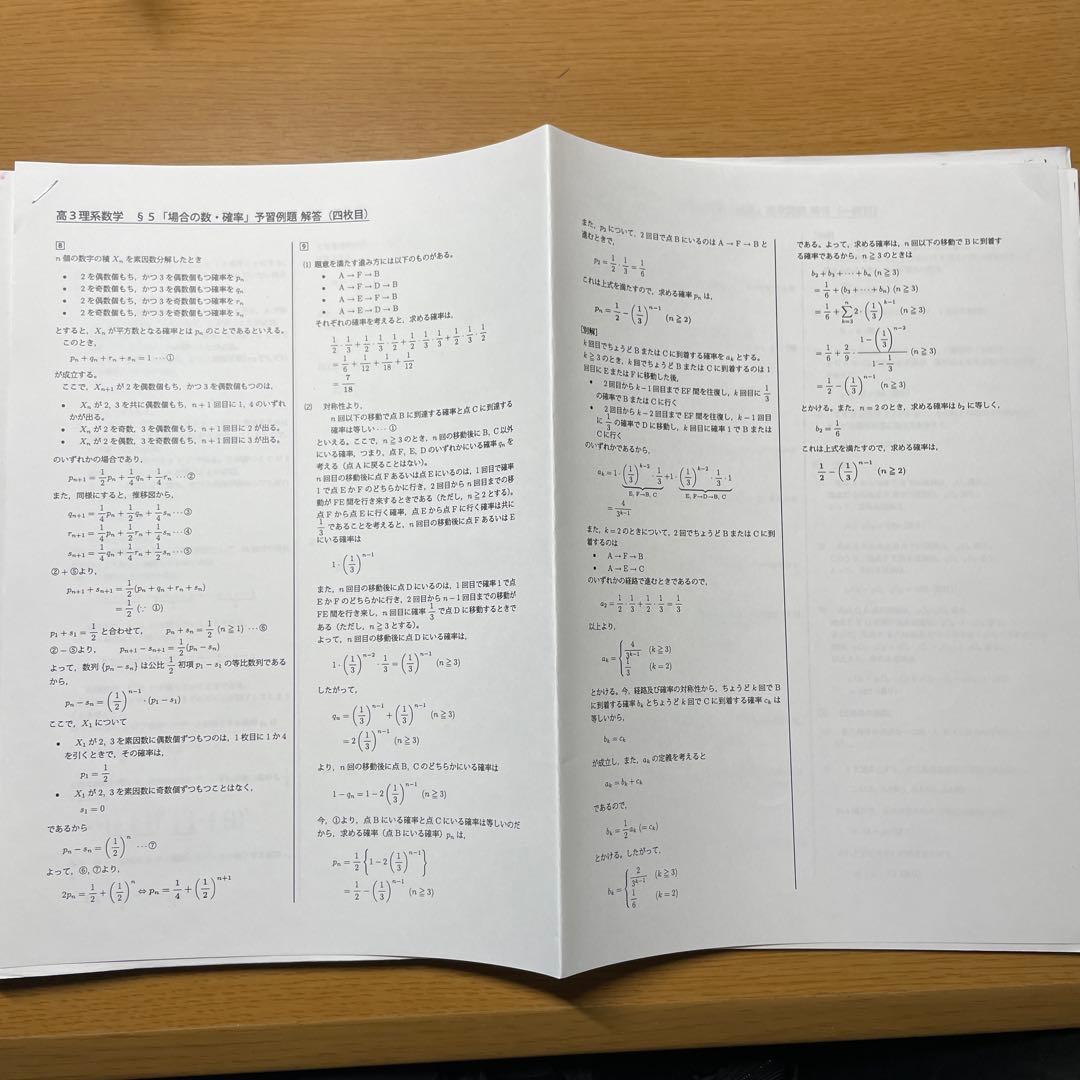 高３理系数学　§５「場合の数・確率」予習例題 解答（四枚目）
8
n 個の数字の積 Xₙ を素因数分解したとき
• 2 を偶数個もち，かつ 3 を偶数個もつ確率を pₙ
• 2 を奇数個もち，かつ 3 を偶数個もつ確率を qₙ
• 2 を偶数個もち，かつ 3 を奇数個もつ確率を rₙ
• 2 を奇数個もち，かつ 3 を奇数個もつ確率を sₙ
とすると，Xₙ が平方数となる確率とは pₙ のことであるといえる。
このとき，
pₙ + qₙ + rₙ + sₙ = 1 ⋯①
が成立する。
ここで，Xₙ₊₁ が 2 を偶数個，かつ 3 を偶数個もつのは，
• Xₙ が 2, 3 を共に偶数個もち，n+1 回目に 1, 4 のいずれ
かが出る。
• Xₙ が 2 を奇数，3 を偶数個もち，n+1 回目に 2 が出る。
• Xₙ が 2 を偶数，3 を奇数個もち，n+1 回目に 3 が出る。
のいずれかの場合であり，
pₙ₊₁ = 1/2 pₙ + 1/4 qₙ + 1/4 rₙ ⋯②
また，同様にすると，推移図から，
qₙ₊₁ = 1/4 pₙ + 1/2 qₙ + 1/4 sₙ ⋯③
rₙ₊₁ = 1/4 pₙ + 1/2 rₙ + 1/4 sₙ ⋯④
sₙ₊₁ = 1/4 qₙ + 1/4 rₙ + 1/2 sₙ ⋯⑤
②+⑤より，
pₙ₊₁ + sₙ₊₁ = 1/2 (pₙ + qₙ + rₙ + sₙ)
= 1/2 (∵ ①)
p₁ + s₁ = 1/2 と合わせて，　pₙ + sₙ = 1/2 (n ≧ 1) ⋯⑥
②−⑤より，　pₙ₊₁ − sₙ₊₁ = 1/2 (pₙ − sₙ)
よって，数列 {pₙ − sₙ} は公比 1/2 初項 p₁ − s₁ の等比数列である
から，
pₙ − sₙ = (1/2)ⁿ⁻¹ · (p₁ − s₁)
ここで，X₁ について
• X₁ が 2, 3 を素因数に偶数個ずつもつのは，1 枚目に 1 か 4
を引くときで，その確率は，
p₁ = 1/2
• X₁ が 2, 3 を素因数に奇数個ずつもつことはなく，
s₁ = 0
であるから
pₙ − sₙ = (1/2)ⁿ ⋯⑦
よって，⑥, ⑦より，
2pₙ = 1/2 + (1/2)ⁿ ⇔ pₙ = 1/4 + (1/2)ⁿ⁺¹
9
(1) 題意を満たす進み方には以下のものがある。
• A → F → B
• A → F → D → B
• A → E → F → B
• A → E → D → B
それぞれの確率を考えると，求める確率は，
1/2 · 1/3 + 1/2 · 1/3 · 1/2 + 1/2 · 1/3 · 1/3 + 1/2 · 1/3 · 1/2
= 1/6 + 1/12 + 1/18 + 1/12
= 7/18
(2) 対称性より，
n 回以下の移動で点 B に到達する確率と点 C に到達する
確率は等しい ⋯①
といえる。ここで，n ≧ 3 のとき，n 回の移動後に B, C 以外
にいる確率，つまり，点 F, E, D のいずれかにいる確率 qₙ を
考える（点 A に戻ることはない）。
n 回目の移動後に点 F あるいは点 E にいるのは，1 回目で確率
1 で点 E か F のどちらかに行き，2 回目から n 回目までの移
動が FE 間を行き来するときである（ただし，n ≧ 2 とする）。
点 F から点 E に行く確率，点 E から点 F に行く確率は共に
1/3 であることを考えると，n 回目の移動後に点 F あるいは E
にいる確率は
1 · (1/3)ⁿ⁻¹
また，n 回目の移動後に点 D にいるのは，1 回目で確率 1 で点
E か F のどちらかに行き，2 回目から n−1 回目までの移動が
FE 間を行き来し，n 回目に確率 1/3 で点 D に移動するときで
ある（ただし，n ≧ 3 とする）。
よって，n 回目の移動後に点 D にいる確率は，
1 · (1/3)ⁿ⁻² · 1/3 = (1/3)ⁿ⁻¹ (n ≧ 3)
したがって，
qₙ = (1/3)ⁿ⁻¹ + (1/3)ⁿ⁻¹ (n ≧ 3)
= 2(1/3)ⁿ⁻¹ (n ≧ 3)
より，n 回の移動後に点 B, C のどちらかにいる確率は
1 − qₙ = 1 − 2(1/3)ⁿ⁻¹ (n ≧ 3)
今，①より，点 B にいる確率と点 C にいる確率は等しいのだ
から，求める確率（点 B にいる確率）pₙ は，
pₙ = 1/2 {1 − 2(1/3)ⁿ⁻¹}
= 1/2 − (1/3)ⁿ⁻¹ (n ≧ 3)
また，p₂ について，2 回目で点 B にいるのは A → F → B と
進むときで，
p₂ = 1/2 · 1/3 = 1/6
これは上式を満たすので，求める確率 pₙ は，
pₙ = 1/2 − (1/3)ⁿ⁻¹ (n ≧ 2)
[別解]
k 回目でちょうど B または C に到着する確率を aₖ とする。
k ≧ 3 のとき，k 回でちょうど B または C に到着するのは 1
回目に E または F に移動した後，
• 2 回目から k−1 回目まで EF 間を往復し，k 回目に 1/3
の確率で B または C に行く
• 2 回目から k−2 回目まで EF 間を往復し，k−1 回目
に 1/3 の確率で D に移動し，k 回目に確率 1 で B または
C に行く
のいずれかであるから，
aₖ = 1 · (1/3)ᵏ⁻² · 1/3 + 1 · (1/3)ᵏ⁻³ · 1/3 · 1
E, F→B, C　E, F→D→B, C
= 4/3ᵏ⁻¹
また，k = 2 のときについて，2 回でちょうど B または C に到
着するのは
• A → F → B
• A → E → C
のいずれかの経路で進むときであるので，
a₂ = 1/2 · 1/3 + 1/2 · 1/3 = 1/3
以上より，
aₖ = { 4/3ᵏ⁻¹ (k ≧ 3)
1/3 (k = 2)
とかける。今，経路及び確率の対称性から，ちょうど k 回で B
に到着する確率 bₖ とちょうど k 回で C に到着する確率 cₖ は
等しいから，
bₖ = cₖ
が成立し，また，aₖ の定義を考えると
aₖ = bₖ + cₖ
であるので，
bₖ = 1/2 aₖ (= cₖ)
とかける。したがって，
bₖ = { 2/3ᵏ⁻¹ (k ≧ 3)
1/6 (k = 2)
である。よって，求める確率は，n 回以下の移動で B に到着す
る確率であるから，n ≧ 3 のときは
b₂ + b₃ + ⋯ + bₙ (n ≧ 3)
= 1/6 + (b₃ + ⋯ + bₙ) (n ≧ 3)
= 1/6 + Σₖ₌₃ⁿ 2 · (1/3)ᵏ⁻¹ (n ≧ 3)
= 1/6 + 2/9 · (1 − (1/3)ⁿ⁻²)/(1 − 1/3) (n ≧ 3)
= 1/2 − (1/3)ⁿ⁻¹ (n ≧ 3)
とかける。また，n = 2 のとき，求める確率は b₂ に等しく，
b₂ = 1/6
これは上式を満たすので，求める確率は，
1/2 − (1/3)ⁿ⁻¹ (n ≧ 2)